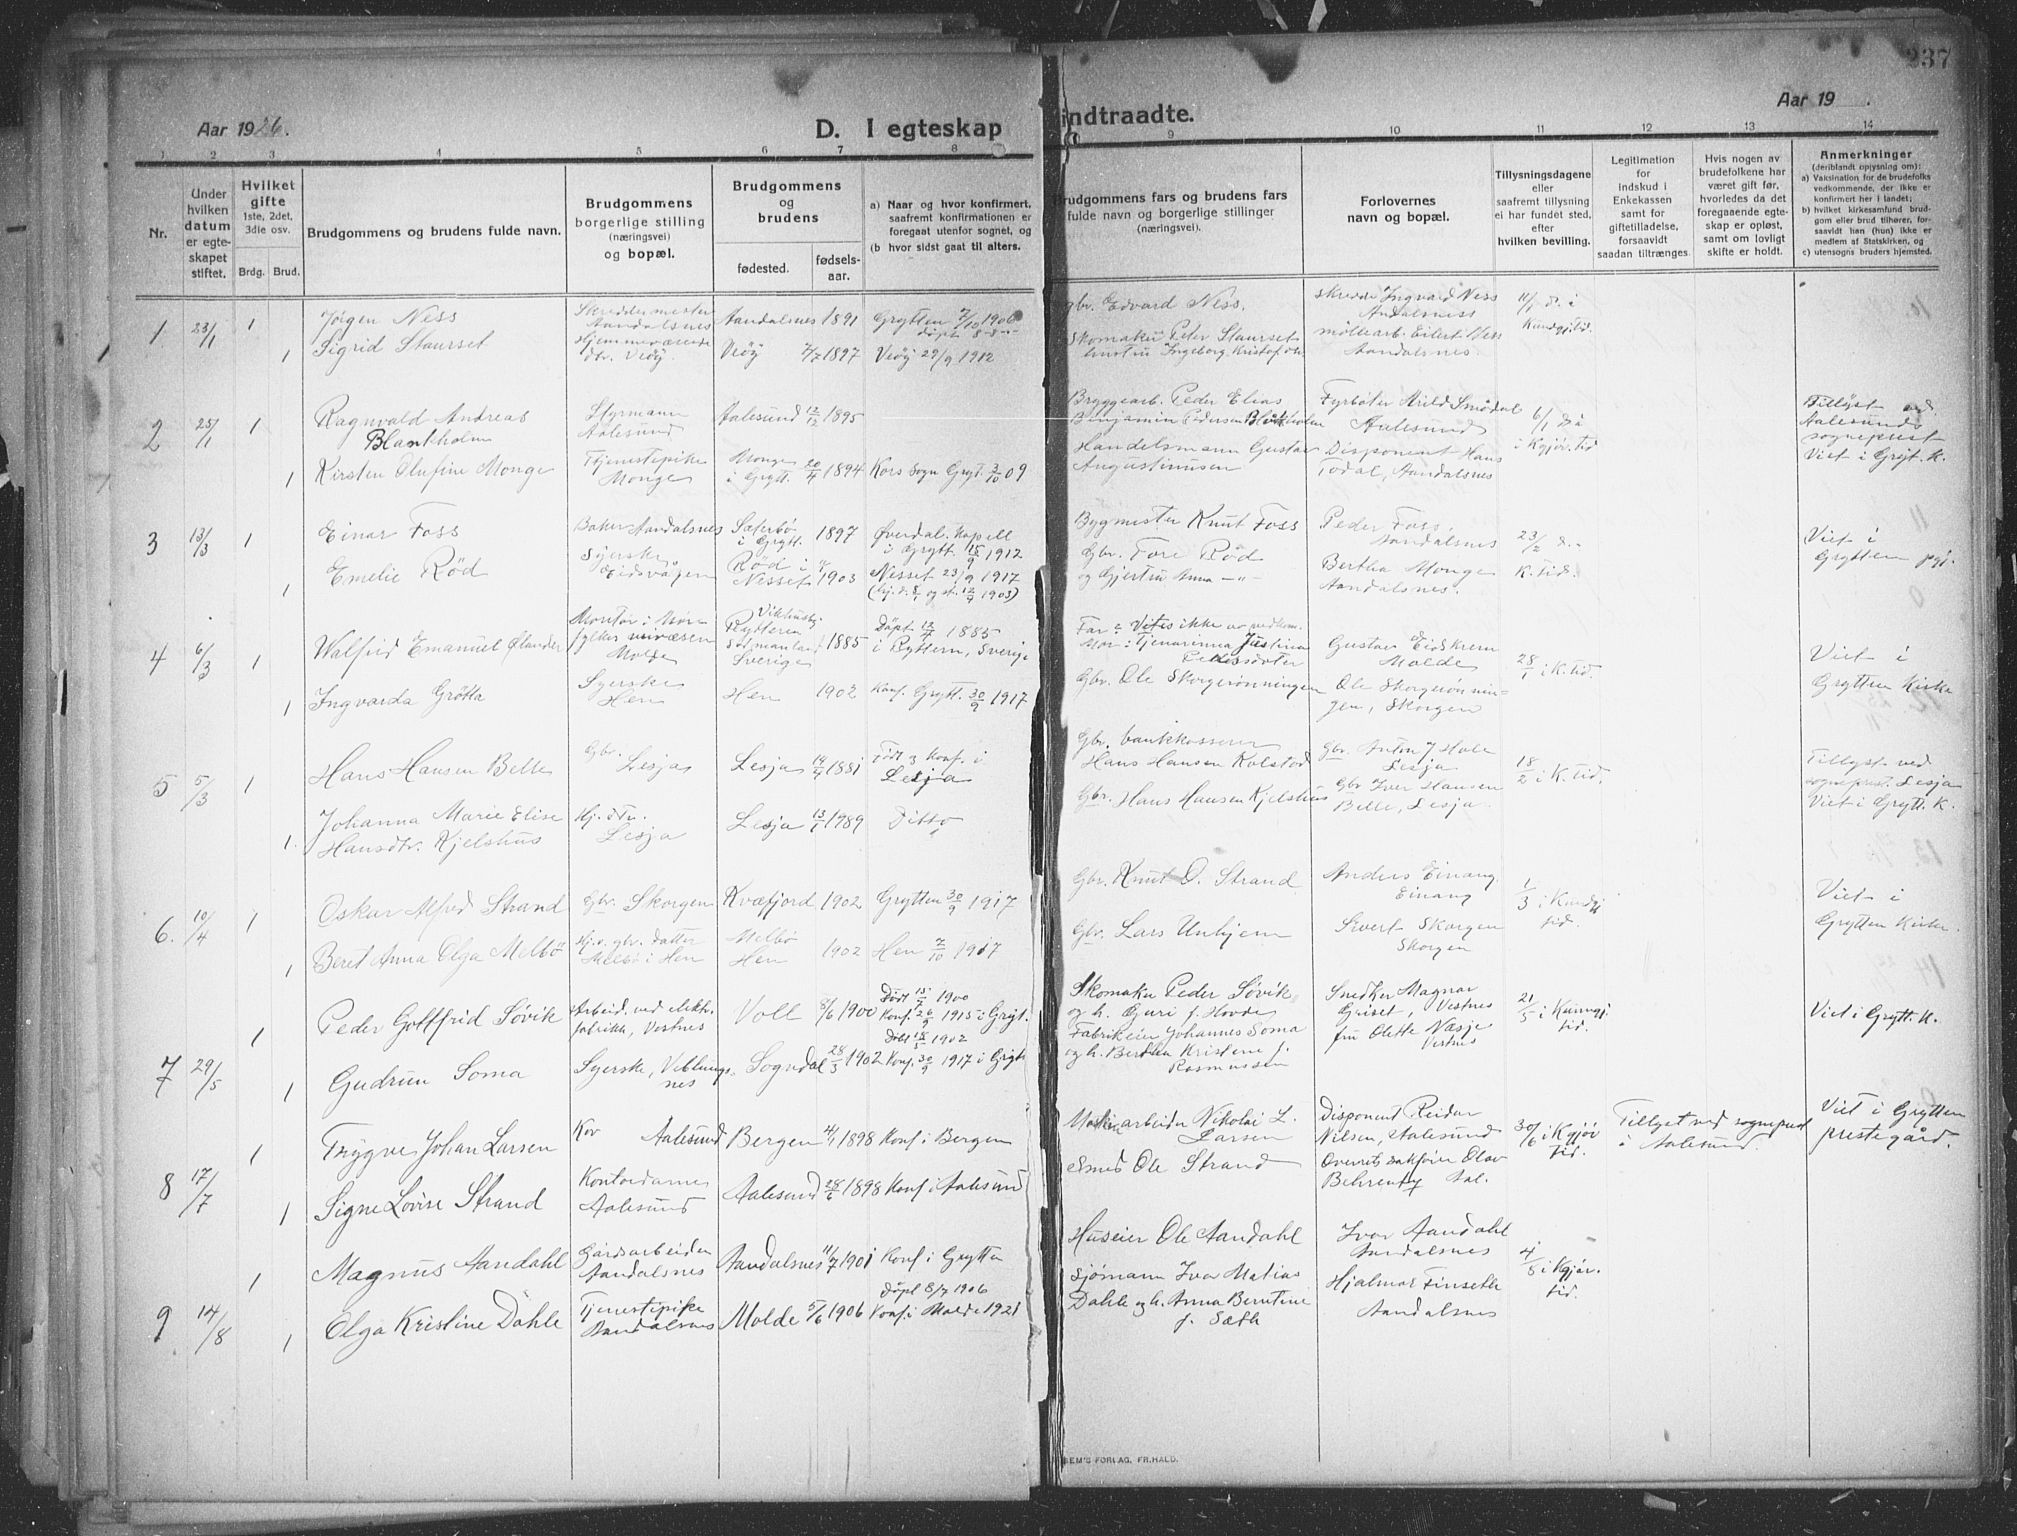 237
Aar 1926.
D. I egteskap
indtraadte.
Aar 19 .
1 2 3 4 5 6 7 8 9 10 11 12 13 14
Nr.
Under hvilken datum er egteskapet stiftet.
Hvilket gifte
1ste, 2det, 3die osv.
Brdg. Brud.
Brudgommens og brudens fulde navn.
Brudgommens borgerlige stilling (næringsvei) og bopæl.
Brudgommens og brudens
fødested.
fødselsaar.
a) Naar og hvor konfirmert, saafremt konfirmationen er foregaat utenfor sognet, og
(b hvor sidst gaat til alters.
Brudgommens fars og brudens fars fulde navn og borgerlige stillinger (næringsvei).
Forlovernes navn og bopæl.
Tillysningsdagene eller saafremt tillysning ei har fundet sted, efter hvilken bevilling.
Legitimation for indskud i Enkekassen samt for giftetilladelse, forsaavidt saadan tiltrænges.
Hvis nogen av brudefolkene har været gift før, hvorledes da det foregaaende egteskap er opløst, samt om lovligt skifte er holdt.
Anmerkninger
(deriblandt opjysning om):
a) Vaksination for de brudefolks vedkommende, der ikke er konfirmert her i landet;
b) hvilket kirkesamfund brudgom eller brud tilhører, forsaavidt han (hun) ikke er medlem av Statskirken, og
c) utensogns bruders hjemsted.
1 23/1 1 Jørgen Ness Skreddermester Aandalsnes Aandalsnes 1891 Grytten 7/10 1906 gbr. Edvard Ness. skredder Ingvard Ness Andalsness 11/1 d. i Kundgj. tid.
1 Sigrid Staurset Hjemmeværende dtr. Veøy. Veøy 2/7 1897 Veøy 29/9 1912 Skomaker Peter Staurset hustru Ingeborg Kristofdtr. møllearb. Eilert Ness Aandalsnes.
2 25/1 1 Ragnvald Andreas Blankholm Styrmann Aalesund Aalesund 12/12 1895 Bryggearb. Peder Elias Benjamin Pedersen Blankholm Fyrbøter Arild Smødal Aalesund 6/1 d.å i Kgjør. tid Tillyst ved Aalesunds sogneprest Viet i Gryt. K.
1 Kirsten Olufine Monge Tjenestepike Monge Monge i Grytt. 20/4 1894 Kors Sogn Gryt. 3/10 09 Handelsmann Gustav Augustinusen Disponent Hans Todal, Aandalsnes
3 13/3 1 Einar Foss Baker Aandalsnes Sæterbø i Grytt. 1897 Øverdal. Kapell i Grytt. 15/9 1912 Bygmester Knut Foss Peder Foss Aandalsnes 23/2 d.- K. tid. Viet i Grytten pgj.
1 Emelie Rød Syerske Eidsvågen Rød i Nesset 1903 Nesset 23/9 1917 Gbr. Tore Rød og Gjertru Anna -"- Bertha Monge Aandalsnes.
4 6/3 1 Walfrid Emanuel Ølander Montør i Møre fylkes Molde Rytteren Södmanland Sverige 1885 Døpt 12/7 1885 i Ryttern, Sverige Far: Vites ikke av vedkom. Mor: Tjenarinna Justina Pedersdoter Gustav Eidskrem Molde 28/1 i K. tid. Viet i Grytten Kirke
1 Ingvarda Grøtta Syerske Hen Hen 1902 Konf. Grytt. 30/9 1917 Gbr. Ole Skorgerønningen Ole Skorgerønningen, Skorgen
5 5/3 1 Hans Hansen Belle Gbr. Lesja Lesja 14/4 1881 Født & Konf. i Lesja Gbr. bankkasserer Hans Hansen Kolstad Gbr. Anton J Hole Lesja 18/2 i K. tid. Tillyst ved sogneprest. Lesja Viet i Grytt. K.
1. Johanna Marie Elise Hansdtr. Kjelshus Hj. dtr. Lesja Lesja 13/1 1989 Ditto Gbr. Hans Hansen Kjelshus Gbr Iver Hansen Belle, Lesja.
6. 10/4 1 Oskar Alfred Strand Gbr. Skorgen Kvæfjord 1902 Grytten 30/9 1917 Gbr. Knut O. Strand Anders Einang Einang 1/3 i Kundgj tid. Viet i Grytten Kirke.
1 Beret Anna Olga Melbö Hj.v. gbr. datter Melbö i Hen Melbö Hen 1902 Hen 7/10 1917 Gbr. Lars Unhjem Sivert Skorgen Skorgen
7 29/5 1 Peder Gottfrid Søvik Arbeid. ved elektr. fabrikk, Vestnes Voll 8/6 1900 Døbt 15/7 1900 Konf. 26/9 1915 i Gryt. Skomaker Peder Søvik og h. Guri f. Hovde Snedker Magnar Griset, Vestnes 21/5 i Kunngj. tid. Viet i Grytt. K.
1 Gudrun Soma Syerske, Veblungsnes Sogndal 28/3 1902 Døbt 18/5 1902 Konf. 30/9 1917 i Gryt. Fabrikeier Johannes Soma og h. Berthea Kristene f. Rasmussen fru Olette Næsje Vestnes
8 17/7 1 Trygve Johan Larsen Aalesund Bergen 4/1 1898 Konf. i Bergen Maskinarbeider Nikolai L. Larsen Disponent Reidar Nilsen, Aalesund 30/6 i Kgjør tid. Tillyst ved sogneprest i Aalesund. Viet i Grytten prestegård.
1 Signe Lovise Strand Kontordame Aalesund Aalesund 28/6 1898 Konf. i Aalesund Ole Strand Overrets sakfører Olav Behrentz Aal.
9 14/8 1 Magnus Aandahl Gårdsarbeider Aandalsnes Aandalsnes 11/7 1901 Konf. i Grytten Huseier Ole Aandahl Ivar Aandahl Aandalsnes 4/8 i Kgjør. tid.
1 Olga Kristine Dahle Tjenestepike Aandalsnes Molde 5/6 1906 Døpt 8/7 1906 Konf. i Molde 1921 Sjømann Iver Matias Dahle og h. Anna Berntine f. Sæth Hjalmar Finseth Aandalsnes
SEM'S FORLAG, FR. HALD.